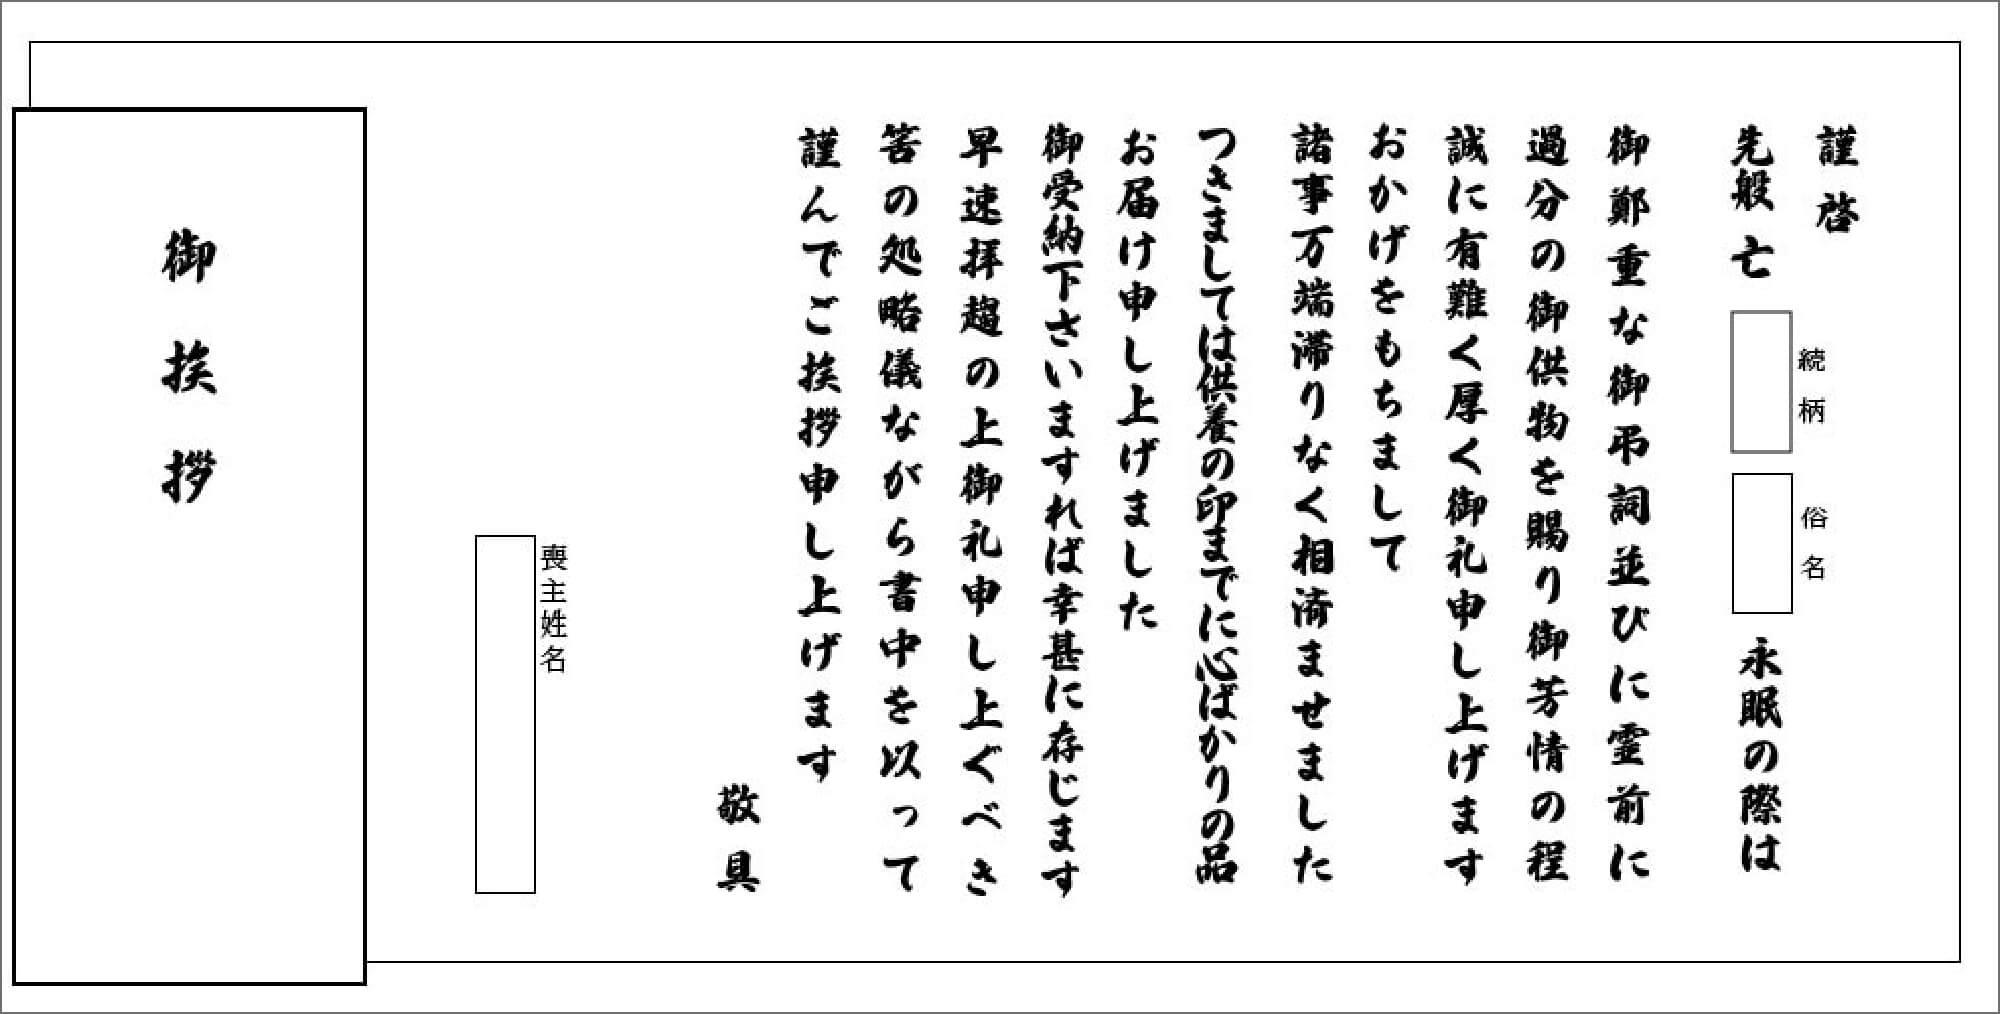 謹啓
先般 亡 続柄 俗名 永眠の際は
御鄭重な御弔詞並びに霊前に
過分の御供物を賜り御芳情の程
誠に有難く厚く御礼申し上げます
おかげをもちまして
諸事万端滞りなく相済ませました
つきましては供養の印までに心ばかりの品
お届け申し上げました
御受納下さいますれば幸甚に存じます
早速拝趨の上御礼申し上ぐべき
筈の処略儀ながら書中を以って
謹んでご挨拶申し上げます
敬具
喪主姓名
御挨拶